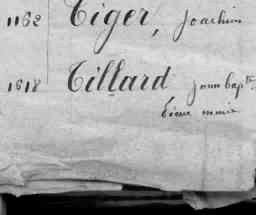 1162 Tiger, Joachim
1618 Tillard Jean Bapte